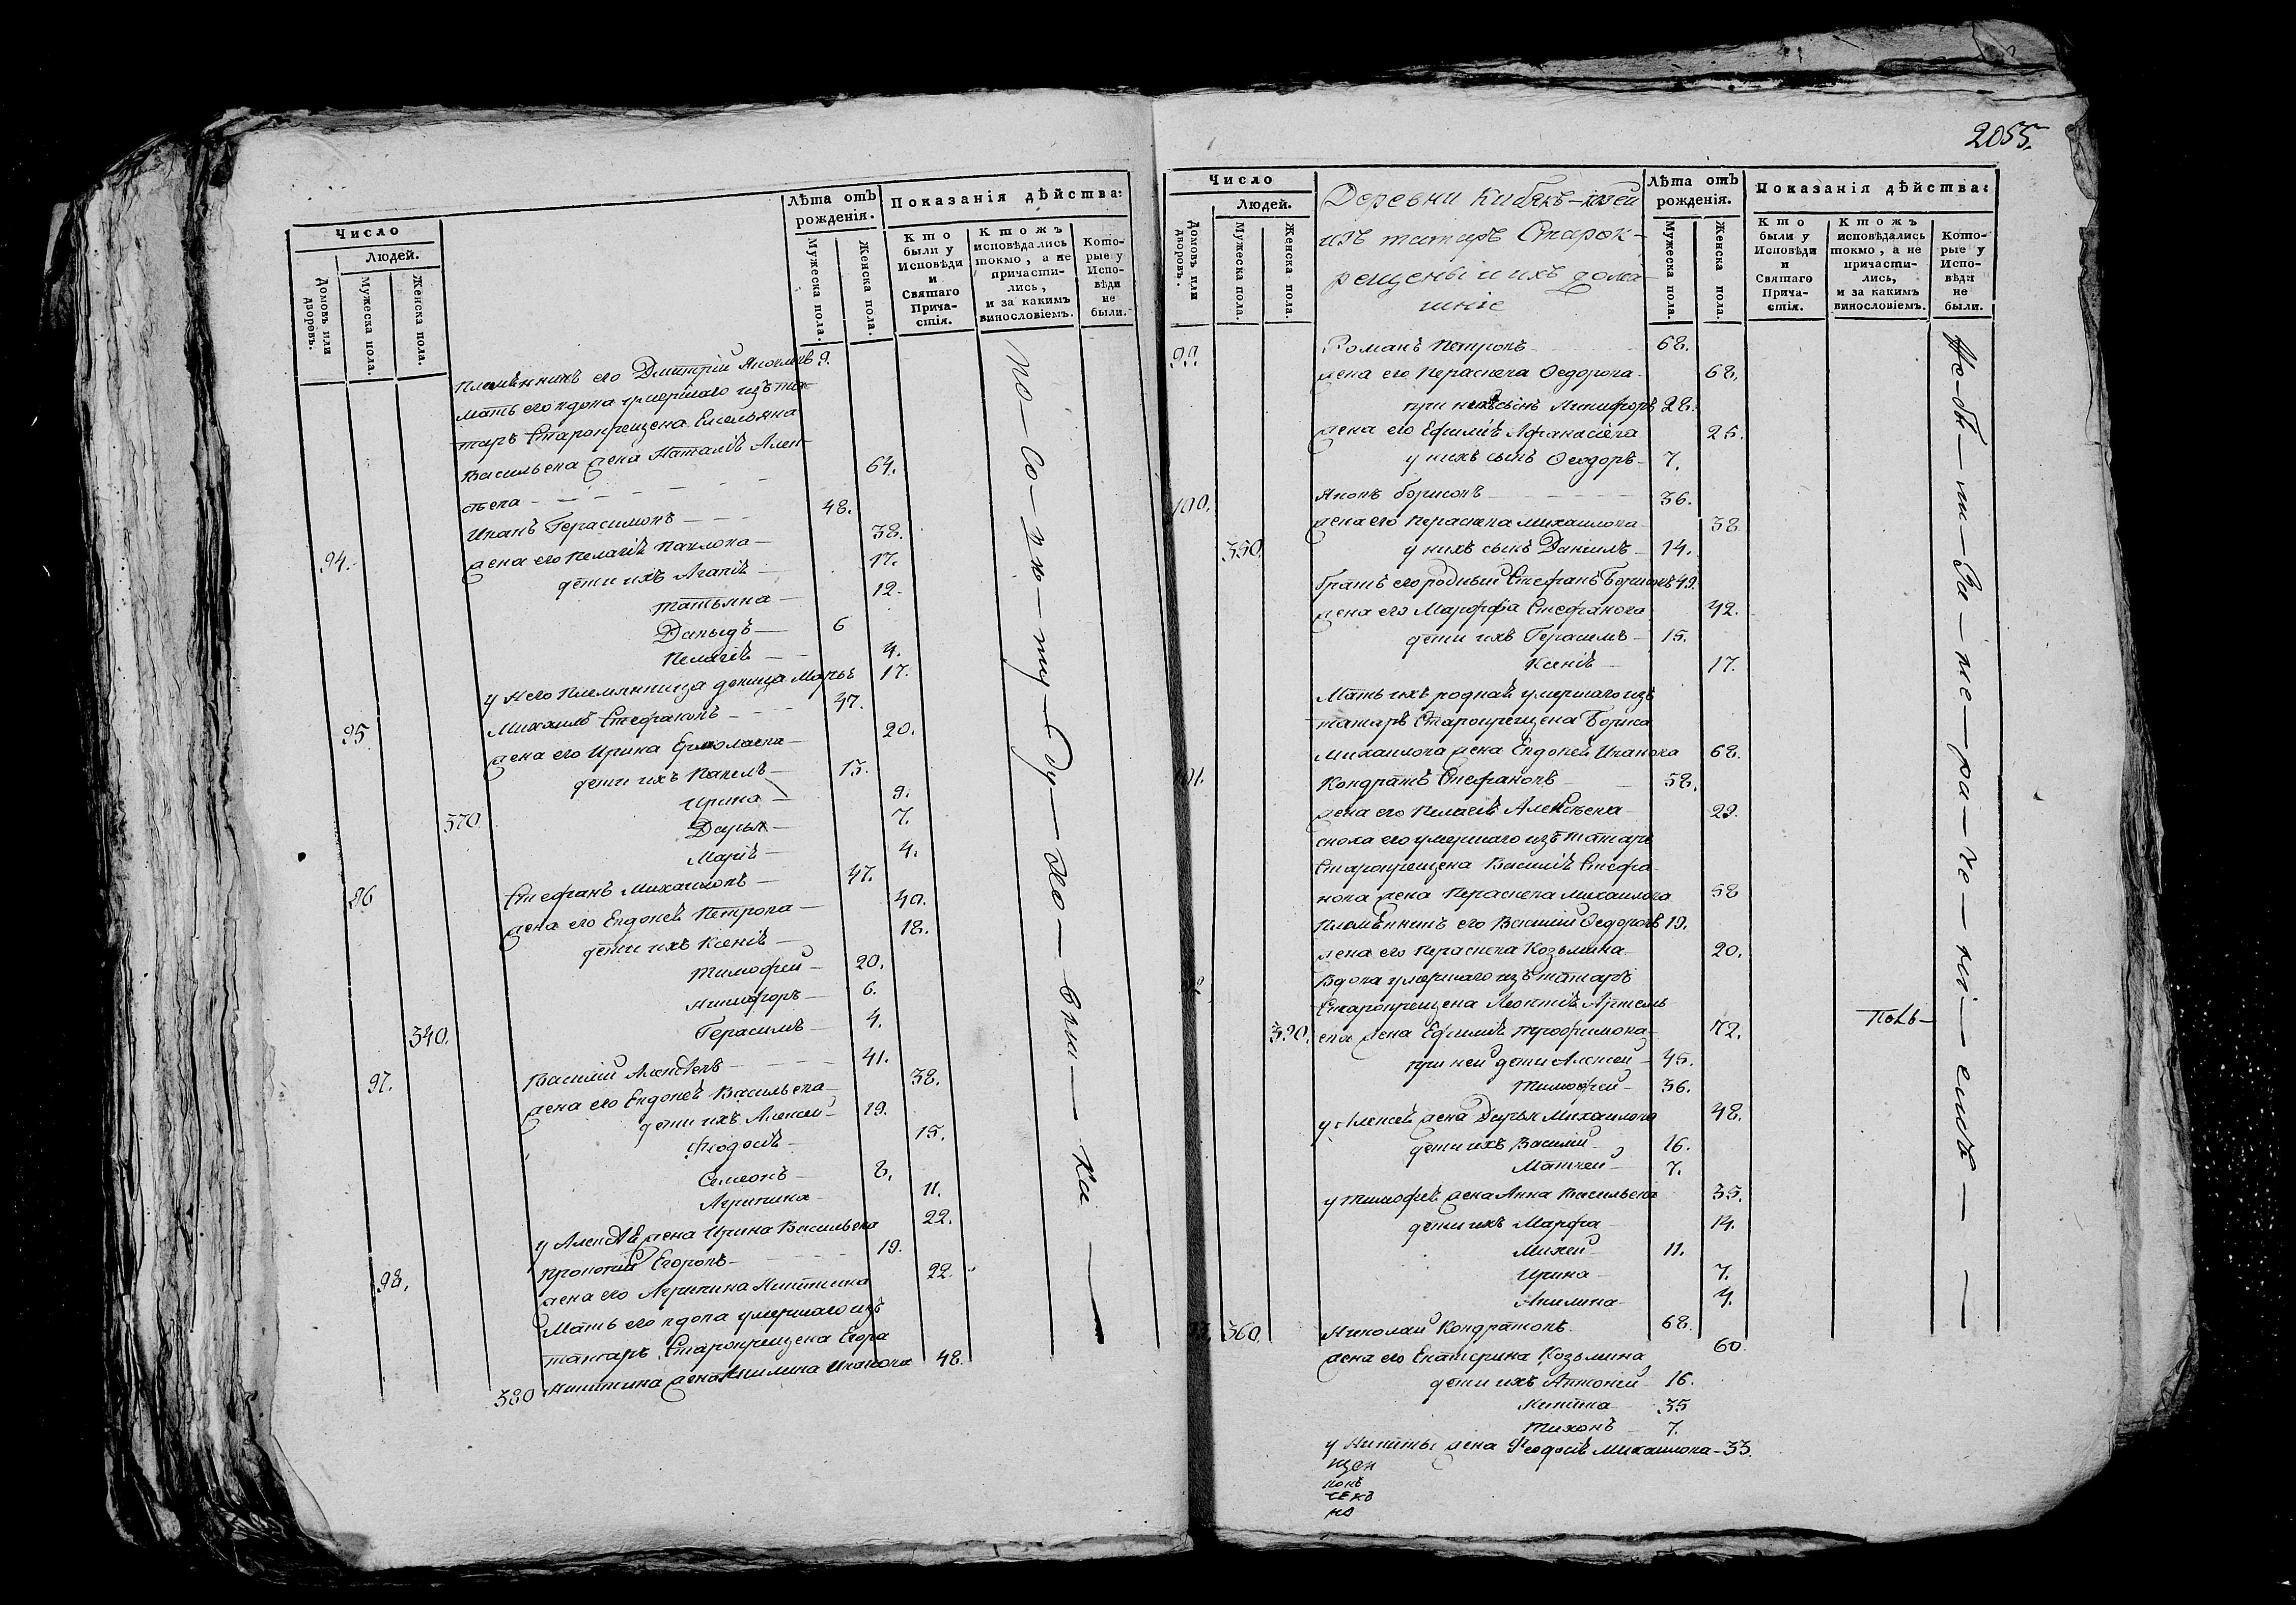 Число
Людей.
Домовъ или дворовъ.
Мужеска пола.
Женска пола.
Лѣта отъ рожденія.
Мужеска пола.
Женска пола.
Показанія дѣйства:
Кто были у Исповѣди и Святаго Причастія.
Ктожъ исповѣдались токмо, а не причастились, и за какимъ винословіемъ.
Которые у Исповѣди не были.
Племѣнникъ его Дмитрій 9.
Мать его вдова умершаго изъ та-
таръ Старокрещена Емельяна
Васильева жена Наталіѣ Алек-
сѣева 64.
94. Иванъ Герасимовъ 48.
жена его Пелагіѣ Павлова 38.
дѣти ихъ Агапіѣ 17.
Татьяна 12.
Давыдъ 6
Пелагіѣ 4.
у него племянница девица Марья 17.
95. Михаилъ Стефановъ 47.
жена его Ирина Ермолаева 20.
дѣти ихъ Павелъ 15.
Ирина 9.
370. Дарья 7.
Маріѣ 4.
96 Стефанъ Михаиловъ 47.
жена его Евдокеѣ Петрова 40.
дѣти ихъ Ксеніѣ 18.
Тимофей 20.
Никифоръ 6.
340. Герасимъ 4.
97. Василій Алексѣевъ 41.
жена его Евдокеѣ Васильева 38.
дѣти ихъ Алексей 19.
Феодосіѣ 15.
Семеонъ 8.
Агрипина 11.
у Алексѣѣ жена Ирина Васильева 22.
98. Прокопій Егоровъ 19.
жена его Агрипина Никитина 22.
Мать его вдова умершаго изъ
татаръ Старокрещена Егора
380 Никитина жена Акилина Иванова 48.
по-со-вѣ-ту-Ду-хо-вни-ка
2055.
Число
Людей.
Домовъ или дворовъ.
Мужеска пола.
Женска пола.
Деревни Кибякъ-
изъ татаръ Старок-
рещены и ихъ дома-
шніе
Лѣта отъ рожденія.
Мужеска пола.
Женска пола.
Показанія дѣйства:
Кто были у Исповѣди и Святаго Причастія.
Ктожъ исповѣдались токмо, а не причастились, и за какимъ винословіемъ.
Которые у Исповѣди не были.
99. Романъ Петровъ 68.
жена его Параскева Федорова 68.
при нихъ сынъ Никифоръ 28.
жена его Ефиміѣ Афанасіева 25.
у нихъ сынъ Феодоръ 7.
100. Яковъ Борисовъ 36.
жена его Параскева Михаилова 38
350 у нихъ сынъ Даніилъ 14.
братъ его родный Стефанъ Борисовъ 49.
жена его Марффа Стефанова 42.
дѣти ихъ Герасимъ 15.
Ксеніѣ 17.
Мать ихъ роднаѣ умершаго изъ
татаръ Старокрещена Бориса
Михаилова жена Евдокеѣ Иванова 68.
101. Кондратъ Стефановъ 58.
жена его Пелагіѣ Алексѣева 29.
сноха его умершаго изъ татаръ
Старокрещена Василіѣ Стефа-
нова жена Параскева Михаилова 58
Племѣнникъ его Василій Федоровъ 19.
жена его Параскева Козьмина 20.
Вдова умершаго изъ татаръ
Старокрещена Леонтіѣ Артемь-
390. ева жена Ефиміѣ Трофимова 72.
при ней дѣти Алексей 45.
Тимофей 36.
у Алексеѣ жена Дарья Михаилова 48.
дѣти ихъ Василій 16.
Матвей 7.
у Тимофеѣ жена Анна Васильева 35.
дѣти ихъ Марфа 14.
Михей 11.
Ирина 7.
Акилина 4.
360. Николай Кондратовъ 68.
жена его Екатерина Козьмина 60.
дѣти ихъ Антоній 16.
Никита 35
Тихонъ 7.
у Никиты жена Феодосіѣ Михаилова 33.